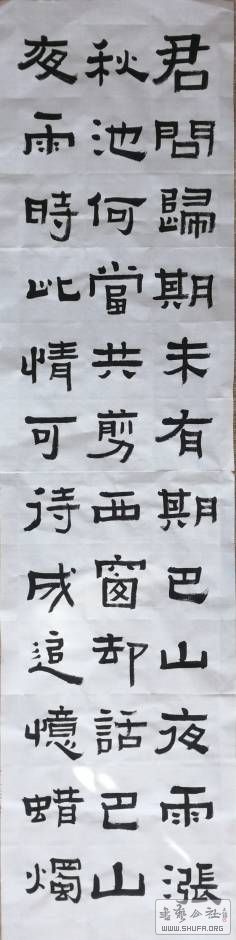 君問歸期未有期巴山夜雨漲
秋池何當共剪西窗却話巴山
夜雨時此情可待成追憶蜡燭
書藝公社
WWW.SHUFA.ORG